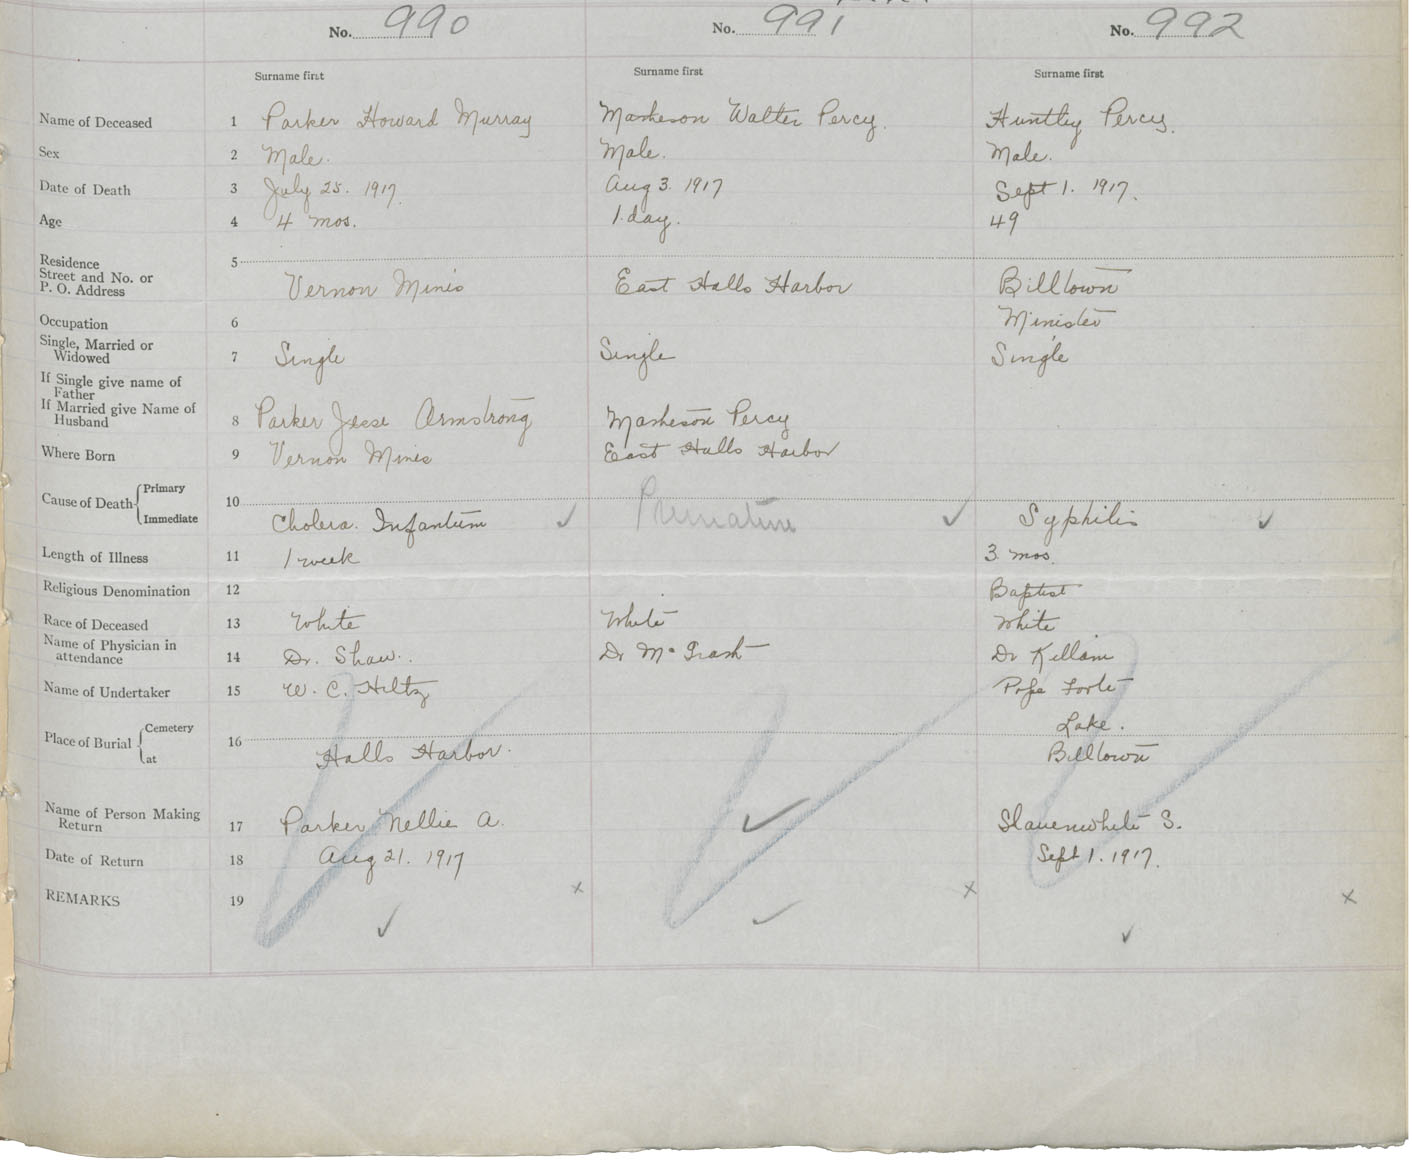 No. 990 No. 991 No. 992
Surname first Surname first Surname first
Name of Deceased 1 Parker Howard Murray Masheson Walter Percy. Huntley Percy.
Sex 2 Male. Male. Male.
Date of Death 3 July 25. 1917. Aug 3. 1917 Sept 1. 1917.
Age 4 4 mos. 1 day. 49
Residence
Street and No. or
P. O. Address 5 Vernon Mines East Halls Harbor Billtown
Occupation 6 Minister
Single, Married or
Widowed 7 Single Single Single
If Single give name of
Father
If Married give Name of
Husband 8 Parker Jesse Armstrong Masheson Percy
Where Born 9 Vernon Mines East Halls Harbor
Cause of Death { Primary
Immediate 10 Cholera. Infantum ✓ Premature ✓ Syphilis ✓
Length of Illness 11 1 week 3 mos.
Religious Denomination 12 Baptist
Race of Deceased 13 White White White
Name of Physician in
attendance 14 Dr. Shaw. Dr McGrath Dr Killam
Name of Undertaker 15 W. C. Hiltz Pope Foote
Place of Burial { Cemetery 16 Lake.
at Halls Harbor. Billtown
Name of Person Making
Return 17 Parker Nellie A. ✓ Slauenwhite S.
Date of Return 18 Aug 21. 1917 Sept 1. 1917.
REMARKS 19 x x x
✓ ✓ ✓